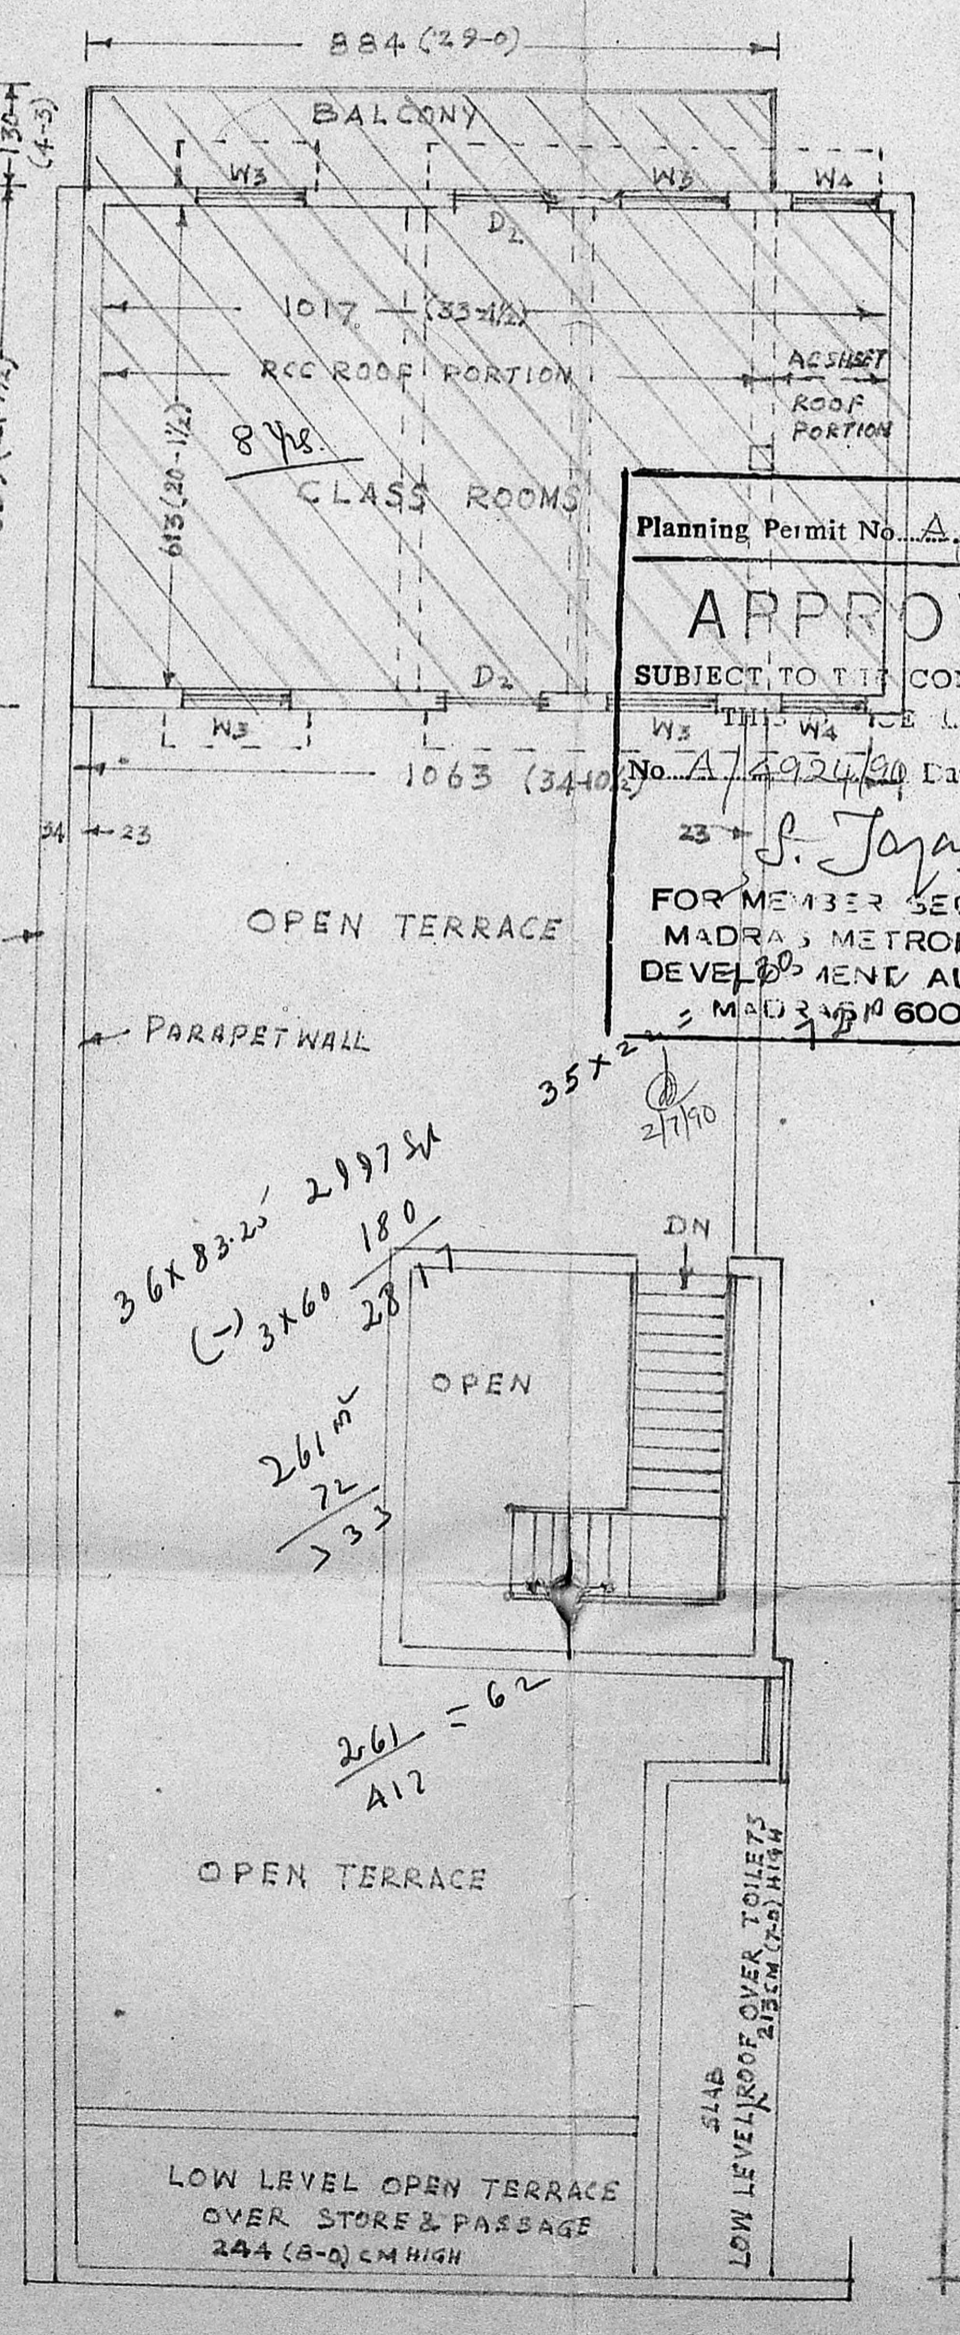 884 (29-0)
130
(4-3)
BALCONY
W3
W3
W4
D2
1017 (33-4½)
RCC ROOF PORTION
ACSHEET
ROOF
PORTION
8 Yrs.
613 (20-1½)
CLASS ROOMS
Planning Permit No. A
APPRO
SUBJECT TO THE CON
D2
W3
W3
W4
1063 (34-10½)
No. A/4924/90 Da
34
23
23
FOR MEMBER SEC
MADRAS METROP
DEVELOPMENT AU
MADRAS 600
OPEN TERRACE
PARAPET WALL
35 x 2
2/7/90
36 x 83.25 2997 Sft
(-) 3 x 60 180
2817
DN
OPEN
261 m²
72
333
261 = 62
417
OPEN TERRACE
LOW LEVEL ROOF OVER TOILETS
SLAB
213CM (7-0) HIGH
LOW LEVEL OPEN TERRACE
OVER STORE & PASSAGE
244 (8-0) CM HIGH